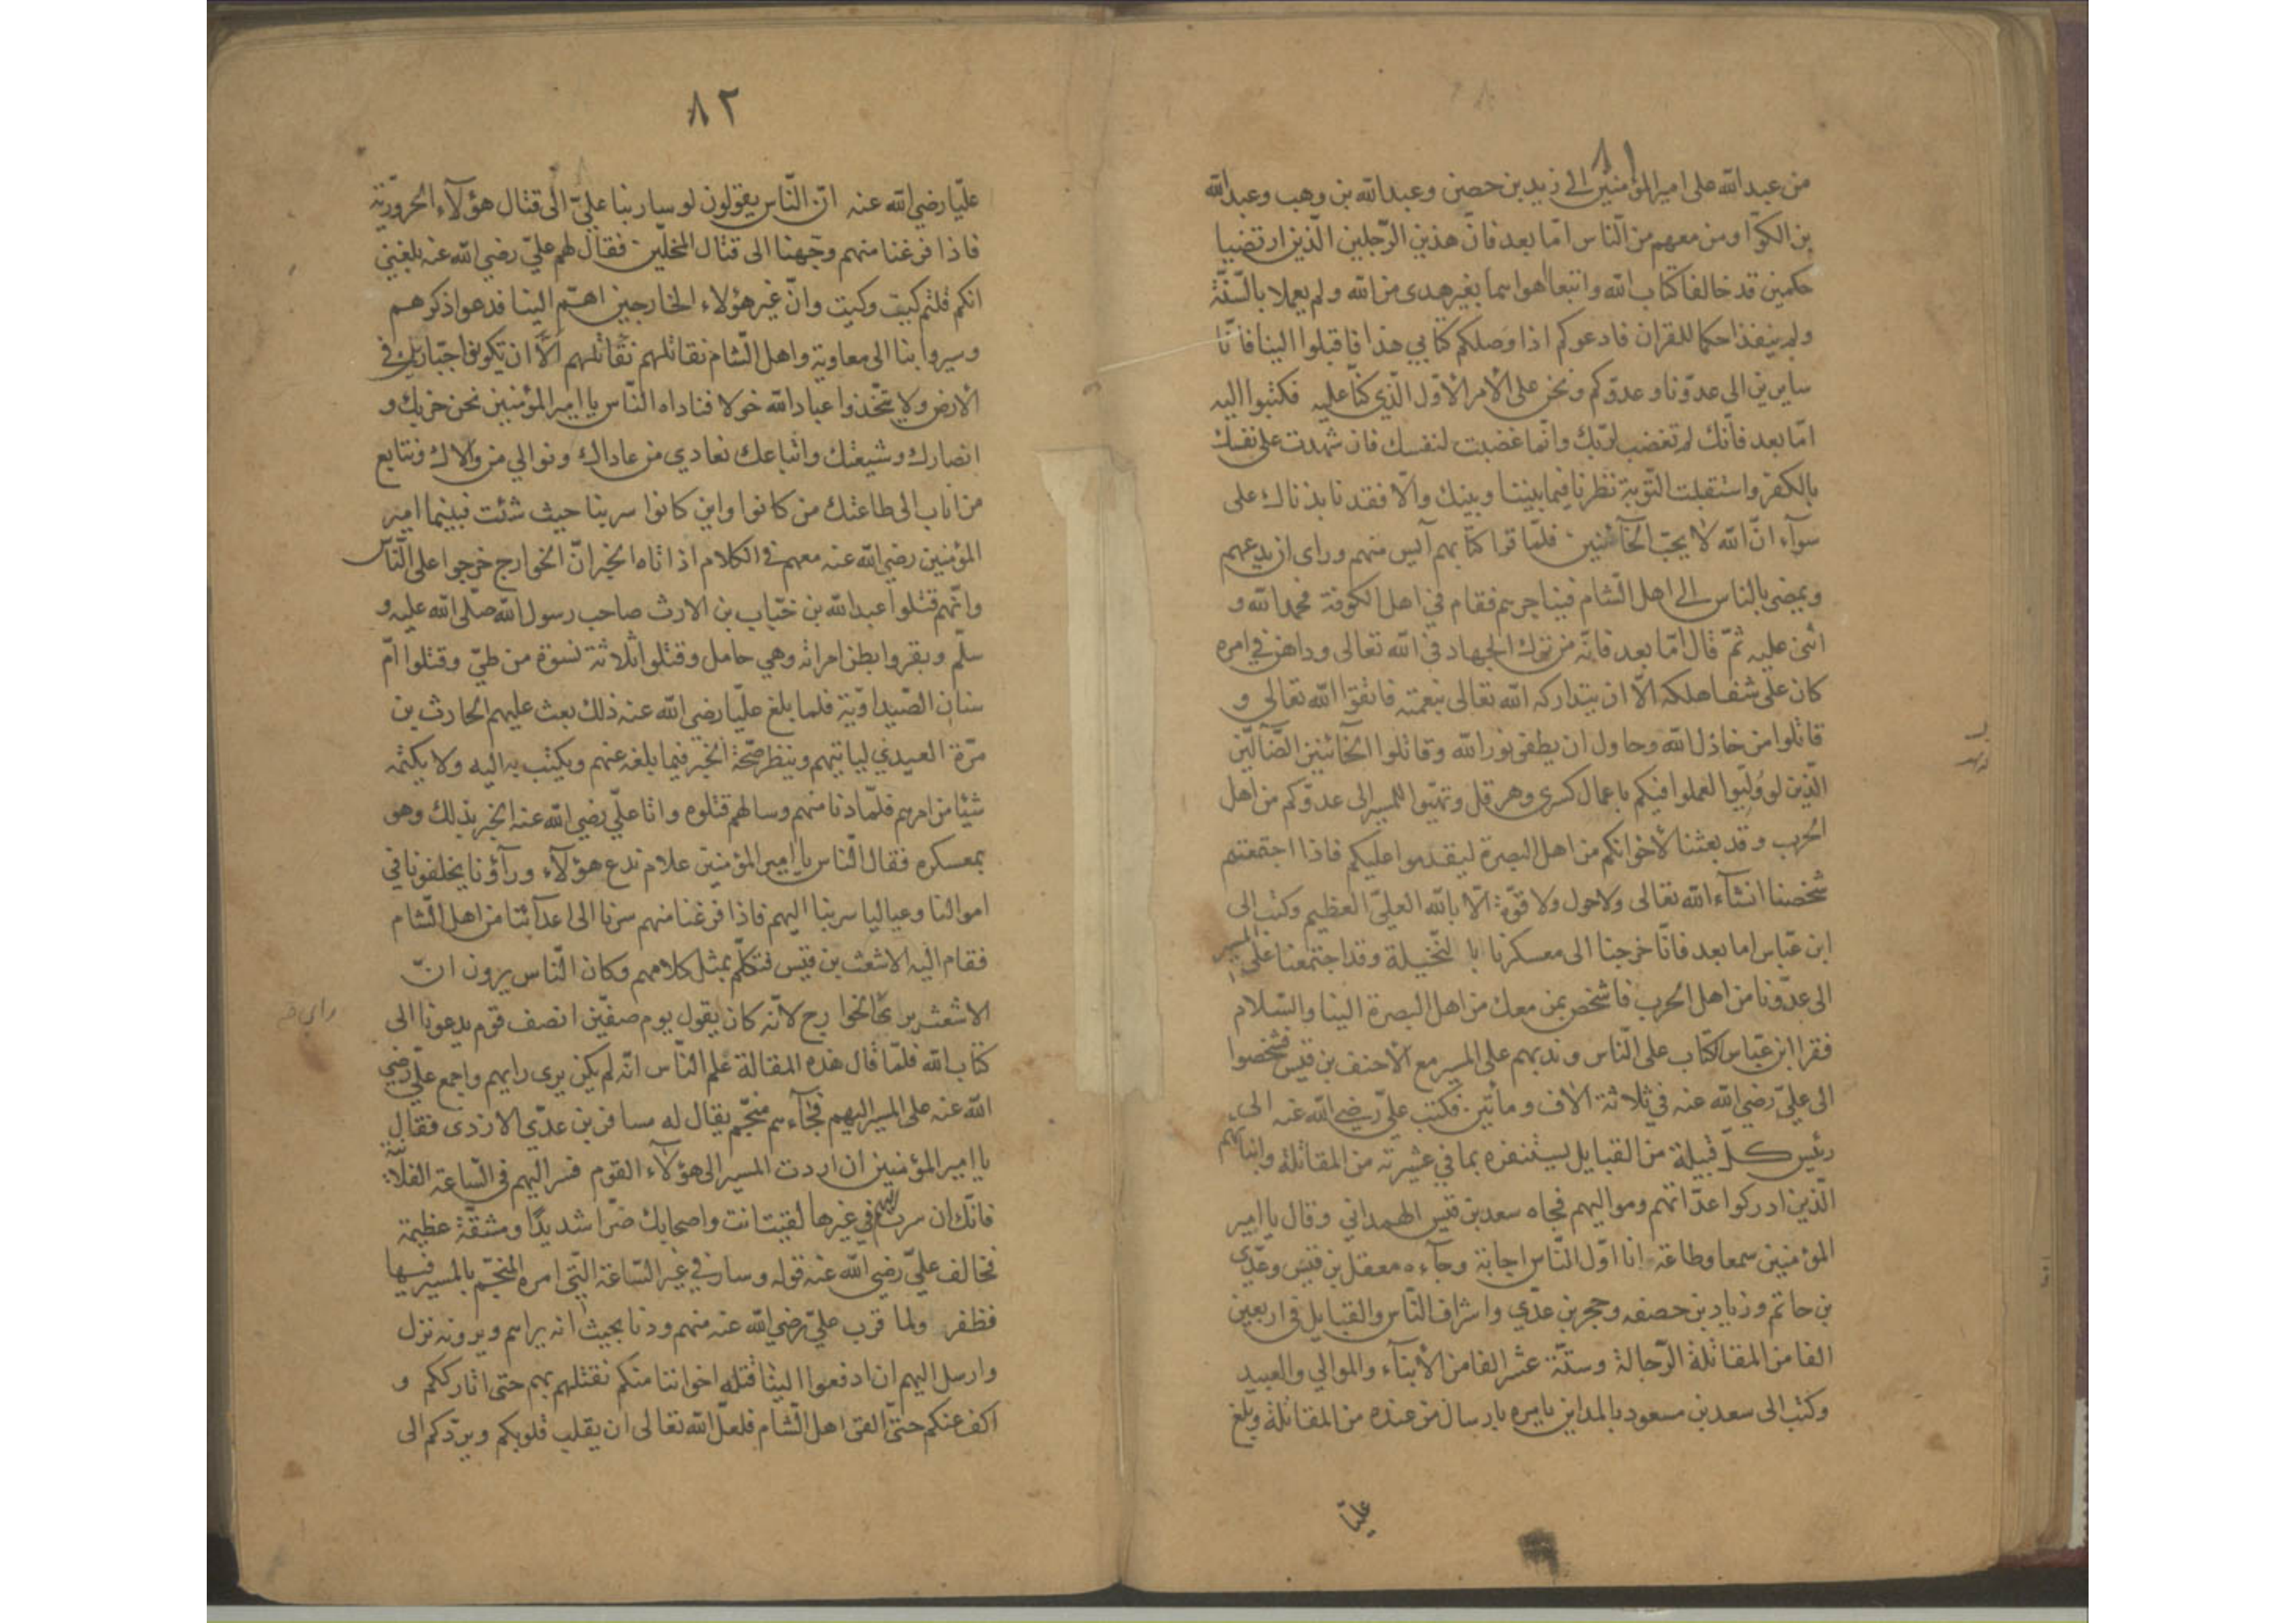 ٨١
من عبدالله على امير المؤمنين الى زيد بن حصن وعبدالله بن وهب وعبدالله
بن الكوّا ومن معهم من النّاس امّا بعد فانّ هذين الرّجلين الّذين ارتضيا
حكمين قد خالفا كتاب الله واتبعا اهواهما بغير هدى من الله ولم يعملا بالسّنّة
ولم ينفذا حكما للقران فادعوكم اذا وصلكم كتابي هذا فاقبلوا الينا فانّا
سايرين الى عدوّنا وعدوّكم ونحن على الأمر الأوّل الّذي كنّا عليه فكتبوا اليه
امّا بعد فانّك لم تغضب لربّك وانّما غضبت لنفسك فان شهدت على نفسك
بالكفر واستقبلت التّوبة نظرنا فيما بيننا وبينك والّا فقد نابذناك على
سوآء انّ الله لا يحبّ الخآئنين فلمّا قرا كتابهم آيس منهم وراى ان يدعهم
ويمضي بالناس الى اهل الشام فيناجزهم فقام في اهل الكوفة فحمد الله و
اثنى عليه ثمّ قال امّا بعد فانّه من ترك الجهاد في الله تعالى وداهن في امره
كان على شفا هلكه الّا ان يتداركه الله تعالى بنعمته فاتقوا الله تعالى و
قاتلوا من خاذل الله وحاول ان يطفي نور الله وقاتلوا الخآئنين الضّآلّين
الّذين لو وُلّيوا لعملوا فيكم باعمال كسرى وهرقل وتهيّوا للمسير الى عدوّكم من اهل
الحرب وقد بعثنا لأخوانكم من اهل البصرة ليقدموا عليكم فاذا اجتمعتم
شخصنا انشآء الله تعالى ولا حول ولا قوّة الّا بالله العليّ العظيم وكتب الى
ابن عبّاس اما بعد فانّا خرجنا الى معسكرنا با لنّخيلة وقد اجتمعنا على المسير
الى عدوّنا من اهل الحرب فاشخص بمن معك من اهل البصرة الينا والسّلام
فقرا ابن عبّاس الكتاب على النّاس وندبهم على المسير مع الأحنف بن قيس فشخصوا
الى عليّ رضي الله عنه في ثلاثة الاف ومأتين فكتب عليّ رضي الله عنه الى
رئيس كلّ قبيلة من القبايل يستنفره بما في عشيرته من المقاتلة وابنائهم
الّذين ادركوا عدّاتهم ومواليهم فجاه سعد بن قيس الهمداني وقال يا امير
المؤمنين سمعا وطاعة انا اوّل النّاس اجابة وجآءه معقل بن قيس وعدّي
بن حاتم وزياد بن حصفه وحجر بن عدّي واشراف النّاس والقبايل في اربعين
الفا من المقاتلة الرّجالة وستّة عشر الفا من الأبنآء والموالي والعبيد
وكتب الى سعد بن مسعود بالمداين يامره بارسال من عنده من المقاتلة وبلغ
عليّا
٨٢
عليّا رضي الله عنه انّ النّاس يقولون لو سار بنا عليّ الى قتال هؤلآء الحروريّة
فاذا فرغنا منهم وجّهنا الى قتال المحلّين فقال لهم عليّ رضي الله عنه بلغني
انكم قلتم كيت وكيت وانّ غير هؤلاء الخارجين اهمّ الينا فدعوا ذكرهم
وسيروا بنا الى معاوية واهل الشام نقاتلهم نقاتلهم الّا ان يكونوا جبّارين في
الأرض ولا يتّخذوا عباد الله خولا فناداه النّاس يا امير المؤمنين نحن حزبك و
انصارك وشيعتك واتباعك نعادي من عاداك ونوالي من والاك ونتابع
من اناب الى طاعتك من كانوا واين كانوا سر بنا حيث شئت فبينما امير
المؤمنين رضي الله عنه معهم في الكلام اذ اتاه الخبر انّ الخوارج خرجوا على النّاس
وانّهم قتلوا عبدالله بن خبّاب بن الارث صاحب رسول الله صلّى الله عليه و
سلّم وبقروا بطن امراته وهي حامل وقتلوا ثلاثة نسوة من طيّ وقتلوا امّ
سنان الصّيداويّة فلما بلغ عليّا رضي الله عنه ذلك بعث عليهم الحارث بن
مرّة العبدي لياتيهم وينظر صحّة الخبر فيما بلغه عنهم ويكتب به اليه ولا يكتمه
شيئا من امرهم فلمّا دنا منهم وسالهم قتلوه واتا عليّ رضي الله عنه الخبر بذلك وهو
بمعسكره فقال النّاس يا امير المؤمنين علام ندع هؤلآء ورآؤنا يخلفونا في
اموالنا وعيالنا سر بنا اليهم فاذا فرغنا منهم سرنا الى اعدآئنا من اهل الشام
فقام اليه الاشعث بن قيس فتكلّم بمثل كلامهم وكان النّاس يرون انّ
الاشعث يرى راى الخوارج لانّه كان يقول يوم صفّين انصف قوم يدعونا الى
كتاب الله فلمّا قال هذه المقالة علم النّاس انّه لم يكن يرى رايهم واجمع عليّ رضي
الله عنه على المسير اليهم فجآءهم منجّم يقال له مسافر بن عدّي الازدى فقال
يا امير المؤمنين ان اردت المسير الى هؤلآء القوم فسر اليهم في السّاعة الفلانيّة
فانّك ان سرت اليهم في غيرها لقيت انت واصحابك ضرّا شديدًا ومشقّة عظيمة
فخالف عليّ رضي الله عنه قوله وسار في غير السّاعة الّتي امره المنجّم بالمسير فيها
فظفر ولما قرب عليّ رضي الله عنه منهم ودنا بحيث انه يراهم ويرونه نزل
وارسل اليهم ان ادفعوا الينا قتله اخواننا منكم نقتلهم بهم حتى اتارككم و
اكف عنكم حتّى القى اهل الشام فلعلّ الله تعالى ان يقلب قلوبكم ويردّكم الى